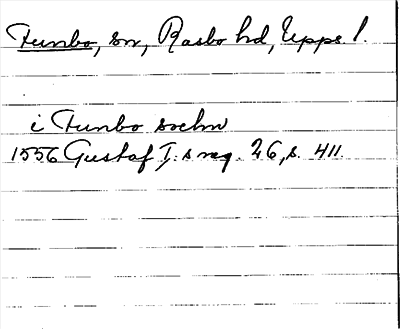 Funbo, sn, Rasbo hd, Upps. l.
i Funbo sochn
1556 Gustaf I:s reg. 26, s. 411.